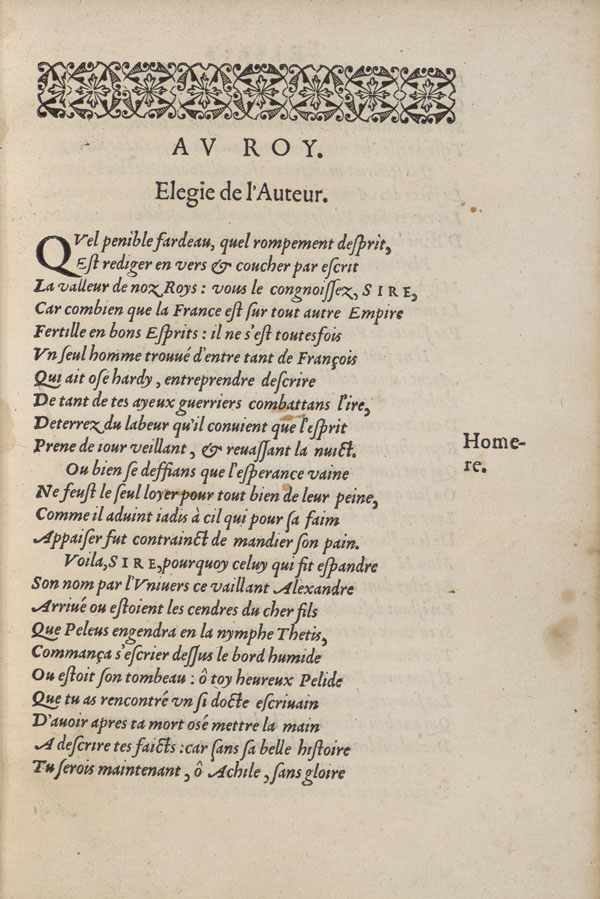 AV ROY.
Elegie de l'Auteur.
QVel penible fardeau, quel rompement desprit,
Est rediger en vers & coucher par escrit
La valleur de noz Roys : vous le congnoissez, SIRE,
Car combien que la France est sur tout autre Empire
Fertille en bons Esprits : il ne s'est toutesfois
Vn seul homme trouué d'entre tant de François
Qui ait ose hardy, entreprendre descrire
De tant de tes ayeux guerriers combattans l'ire,
Deterrez du labeur qu'il conuient que l'esprit
Prene de iour veillant, & reuassant la nuict.
Home-
re.
Ou bien se deffians que l'esperance vaine
Ne feust le seul loyer pour tout bien de leur peine,
Comme il aduint iadis à cil qui pour sa faim
Appaiser fut contrainct de mandier son pain.
Voila, SIRE, pourquoy celuy qui fit espandre
Son nom par l'Vniuers ce vaillant Alexandre
Arriué ou estoient les cendres du cher fils
Que Peleus engendra en la nymphe Thetis,
Commança s'escrier dessus le bord humide
Ou estoit son tombeau : ô toy heureux Pelide
Que tu as rencontré vn si docte escriuain
D'auoir apres ta mort osé mettre la main
A descrire tes faicts : car sans sa belle histoire
Tu serois maintenant, ô Achile, sans gloire